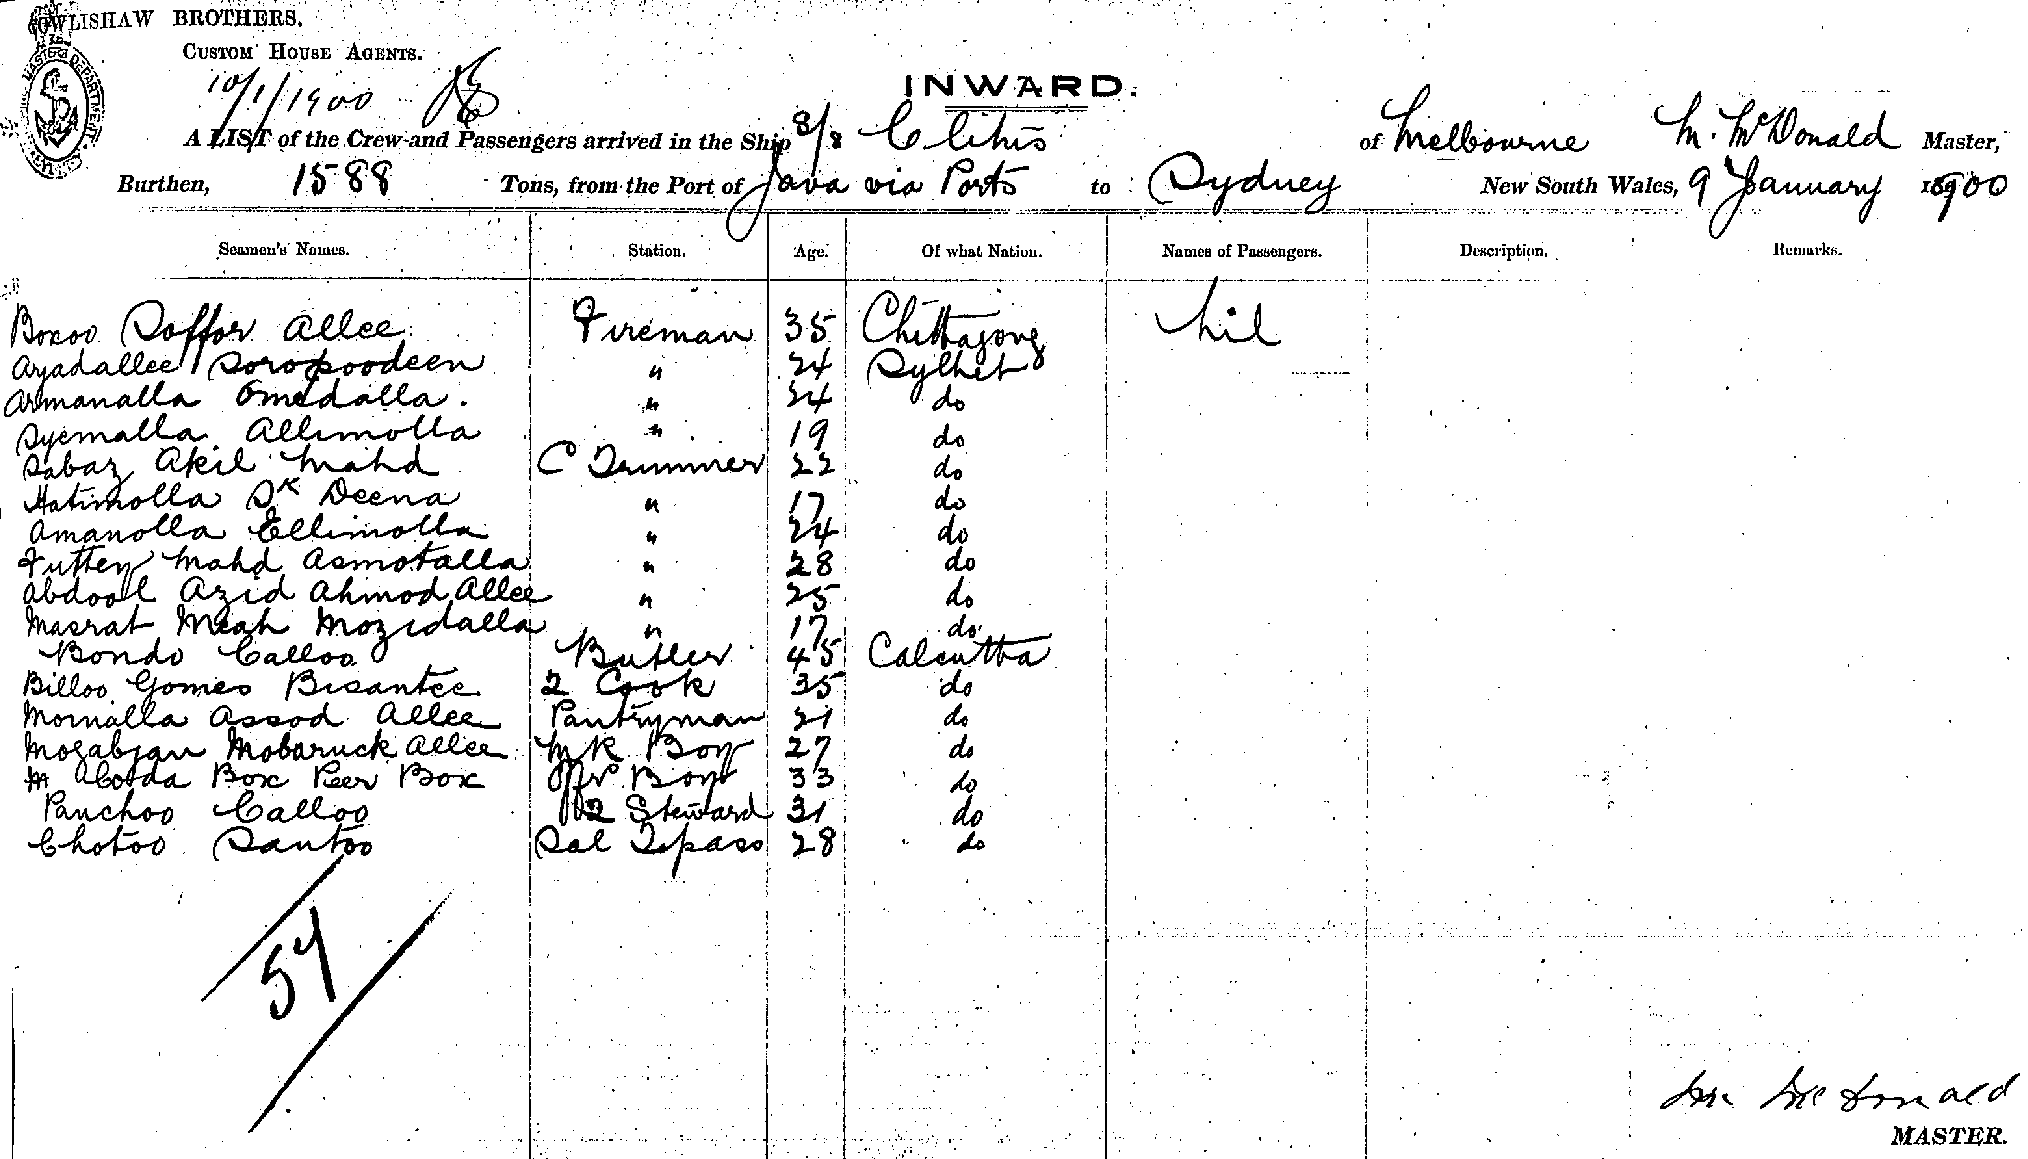 COWLISHAW BROTHERS.
CUSTOM HOUSE AGENTS.
MASTER DEPARTMENT
10/1/1900
INWARD.
A LIST of the Crew and Passengers arrived in the Ship S/S Clitus of Melbourne M. McDonald Master,
Burthen, 1588 Tons, from the Port of Java via Ports to Sydney New South Wales, 9 January 1900
Seamen's Names. Station. Age. Of what Nation. Names of Passengers. Description. Remarks.
Boxoo Soffor Allee Fireman 35 Chittagong Nil
Ayadallee Soropoodeen " 24 Sylhet
Armanalla Omedalla. " 24 do
Syemalla Allimolla " 19 do
Sabaz Akil Mahd C Trimmer 22 do
Hatimolla Sk Deena " 17 do
Amanolla Ellimolla " 24 do
Futtey Mahd Asmotalla " 28 do
Abdool Azid Ahmod Allee " 25 do
Masrat Meah Mozidalla " 17 do
Bondo Calloo Butler 45 Calcutta
Billoo Gomes Bisantee 2 Cook 35 do
Mornalla Assod Allee Pantryman 21 do
Mogabjan Mobaruck Allee Boy 27 do
Box Peer Box Boy 33 do
Panchoo Calloo 2 Steward 31 do
Chotoo Santoo Sal Topass 28 do
54
M McDonald
MASTER.